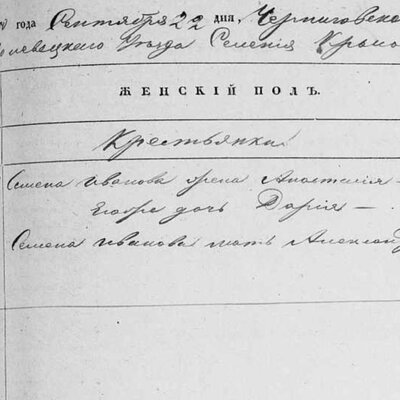 года Сентября 22 дня, Черниговско
олевецкого Уезда Селения
ЖЕНСКІЙ ПОЛЪ.
Крестьянки
Семена Иванова жена Анастасія —
Его же дочь Дарія —
Семена Иванова мать Александ